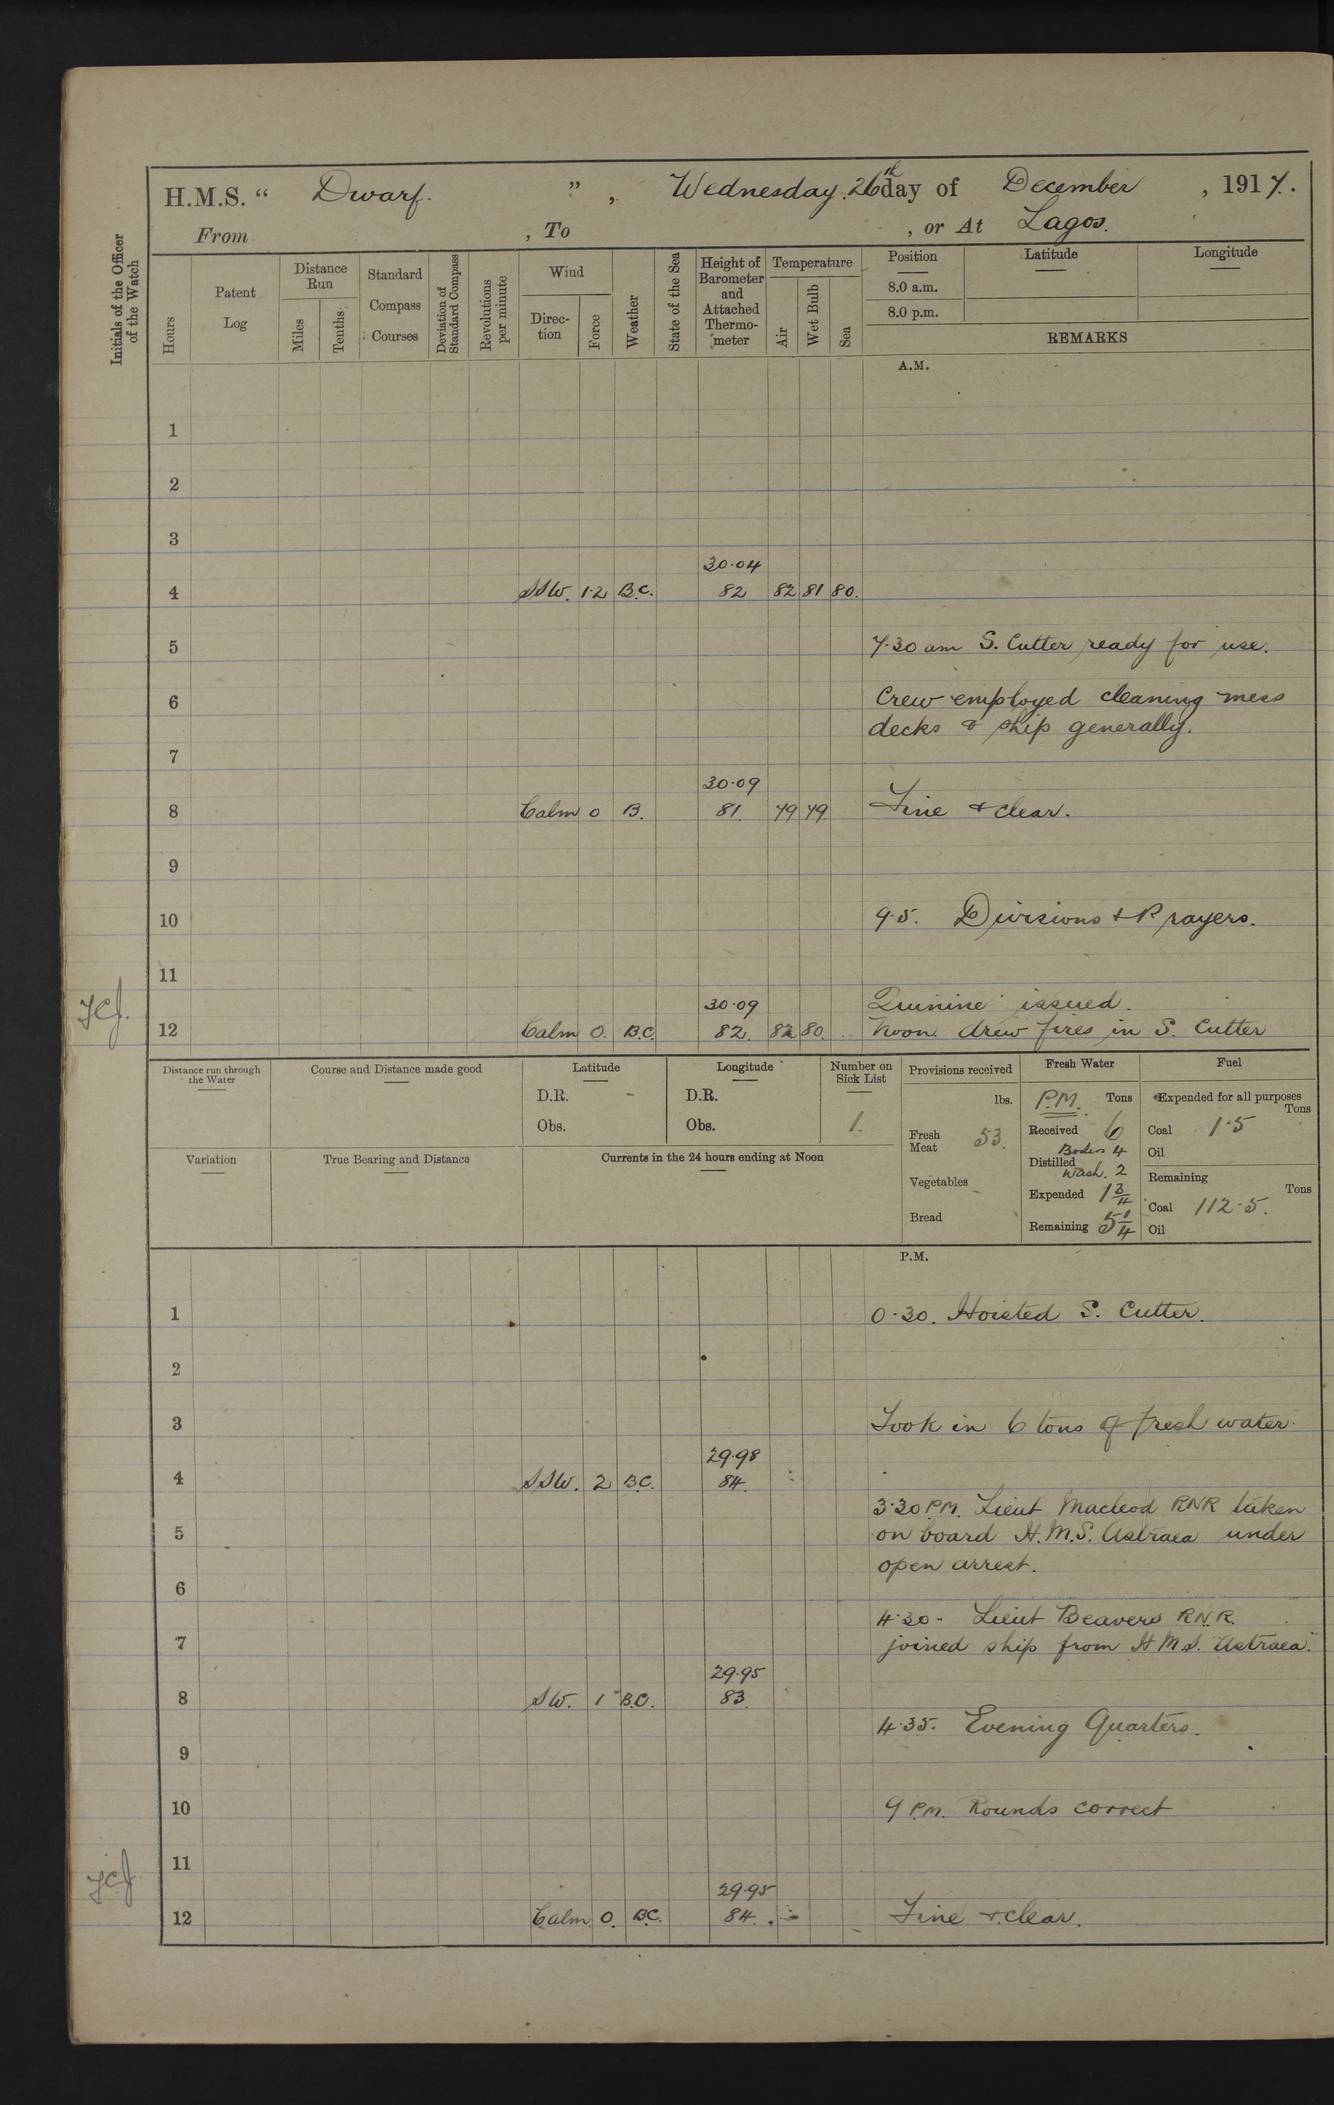 H.M.S. “ Dwarf. ”, Wednesday. 26th day of December, 1917.
From , To , or At Lagos.
Initials of the Officer of the Watch
Hours
Patent Log
Distance Run
Miles
Tenths
Standard Compass Courses
Deviation of Standard Compass
Revolutions per minute
Wind
Direc-tion
Force
Weather
State of the Sea
Height of Barometer and Attached Thermo-meter
Temperature
Air
Wet Bulb
Sea
Position
8.0 a.m.
8.0 p.m.
Latitude
Longitude
REMARKS
A.M.
1
2
3
30·04
4 SSW. 1·2 B.C. 82 82 81 80.
5 7·30 am S. Cutter ready for use.
6 Crew employed cleaning mess
decks & ship generally.
7
30·09
8 Calm 0 B. 81. 79 79 Fine & clear.
9
10 9·5. Divisions & Prayers.
11
30·09 Quinine issued.
12 Calm 0. B.C. 82. 82 80. Noon. drew fires in S. Cutter
Distance run through the Water
Course and Distance made good
Latitude
D.R. -
Obs.
Longitude
D.R.
Obs.
Number on Sick List
1.
Variation
True Bearing and Distance
Currents in the 24 hours ending at Noon
Provisions received
lbs.
Fresh Meat 53.
Vegetables
Bread
Fresh Water
P.M. Tons
Received 6
Boilers 4
Distilled
Wash. 2
Expended 1 3/4
Remaining 5 1/4
Fuel
Expended for all purposes
Tons
Coal 1·5
Oil
Remaining
Tons
Coal 112·5.
Oil
P.M.
1 0·30. Hoisted S. Cutter.
2
3 Took in 6 tons of fresh water.
29·98
4 SSW. 2 B.C. 84.
3·30 P.M. Lieut Macleod RNR taken
5 on board H.M.S. Astraea under
open arrest.
6
4·30 - Lieut Beavers R.N.R.
7 joined ship from H.M.S. "Astraea".
29·95
8 SW. 1 B.C. 83.
4·35. Evening Quarters.
9
10 9 P.M. Rounds correct
11
29·95
12 Calm 0. B.C. 84. Fine & clear.